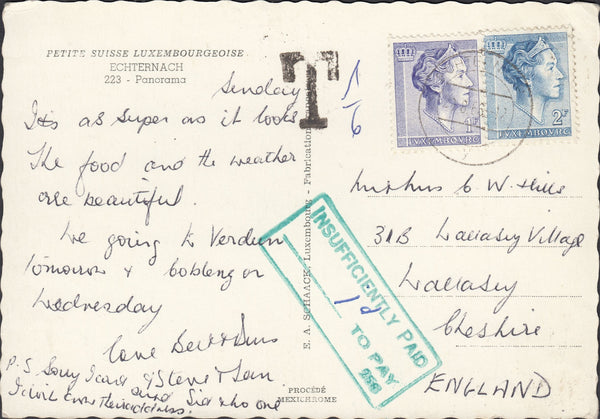 PETITE SUISSE LUXEMBOURGEOISE
ECHTERNACH
223 - Panorama
Sunday
Its as super as it looks
The food and the weather
are beautiful.
We going to Verdun
tomorrow & Coblenz on
Wednesday
Love
P.S. Sorry I can't
send Sid who one
T
1/6
E. A. SCHAACK, Luxembourg - Fabrication
PROCÉDÉ
MEXICHROME
INSUFFICIENTLY PAID
1d
TO PAY
1F
LUXEMBOURG
2F
LUXEMBOURG
C. W. Hills
31B Wallasey Village
Wallasey
Cheshire
ENGLAND